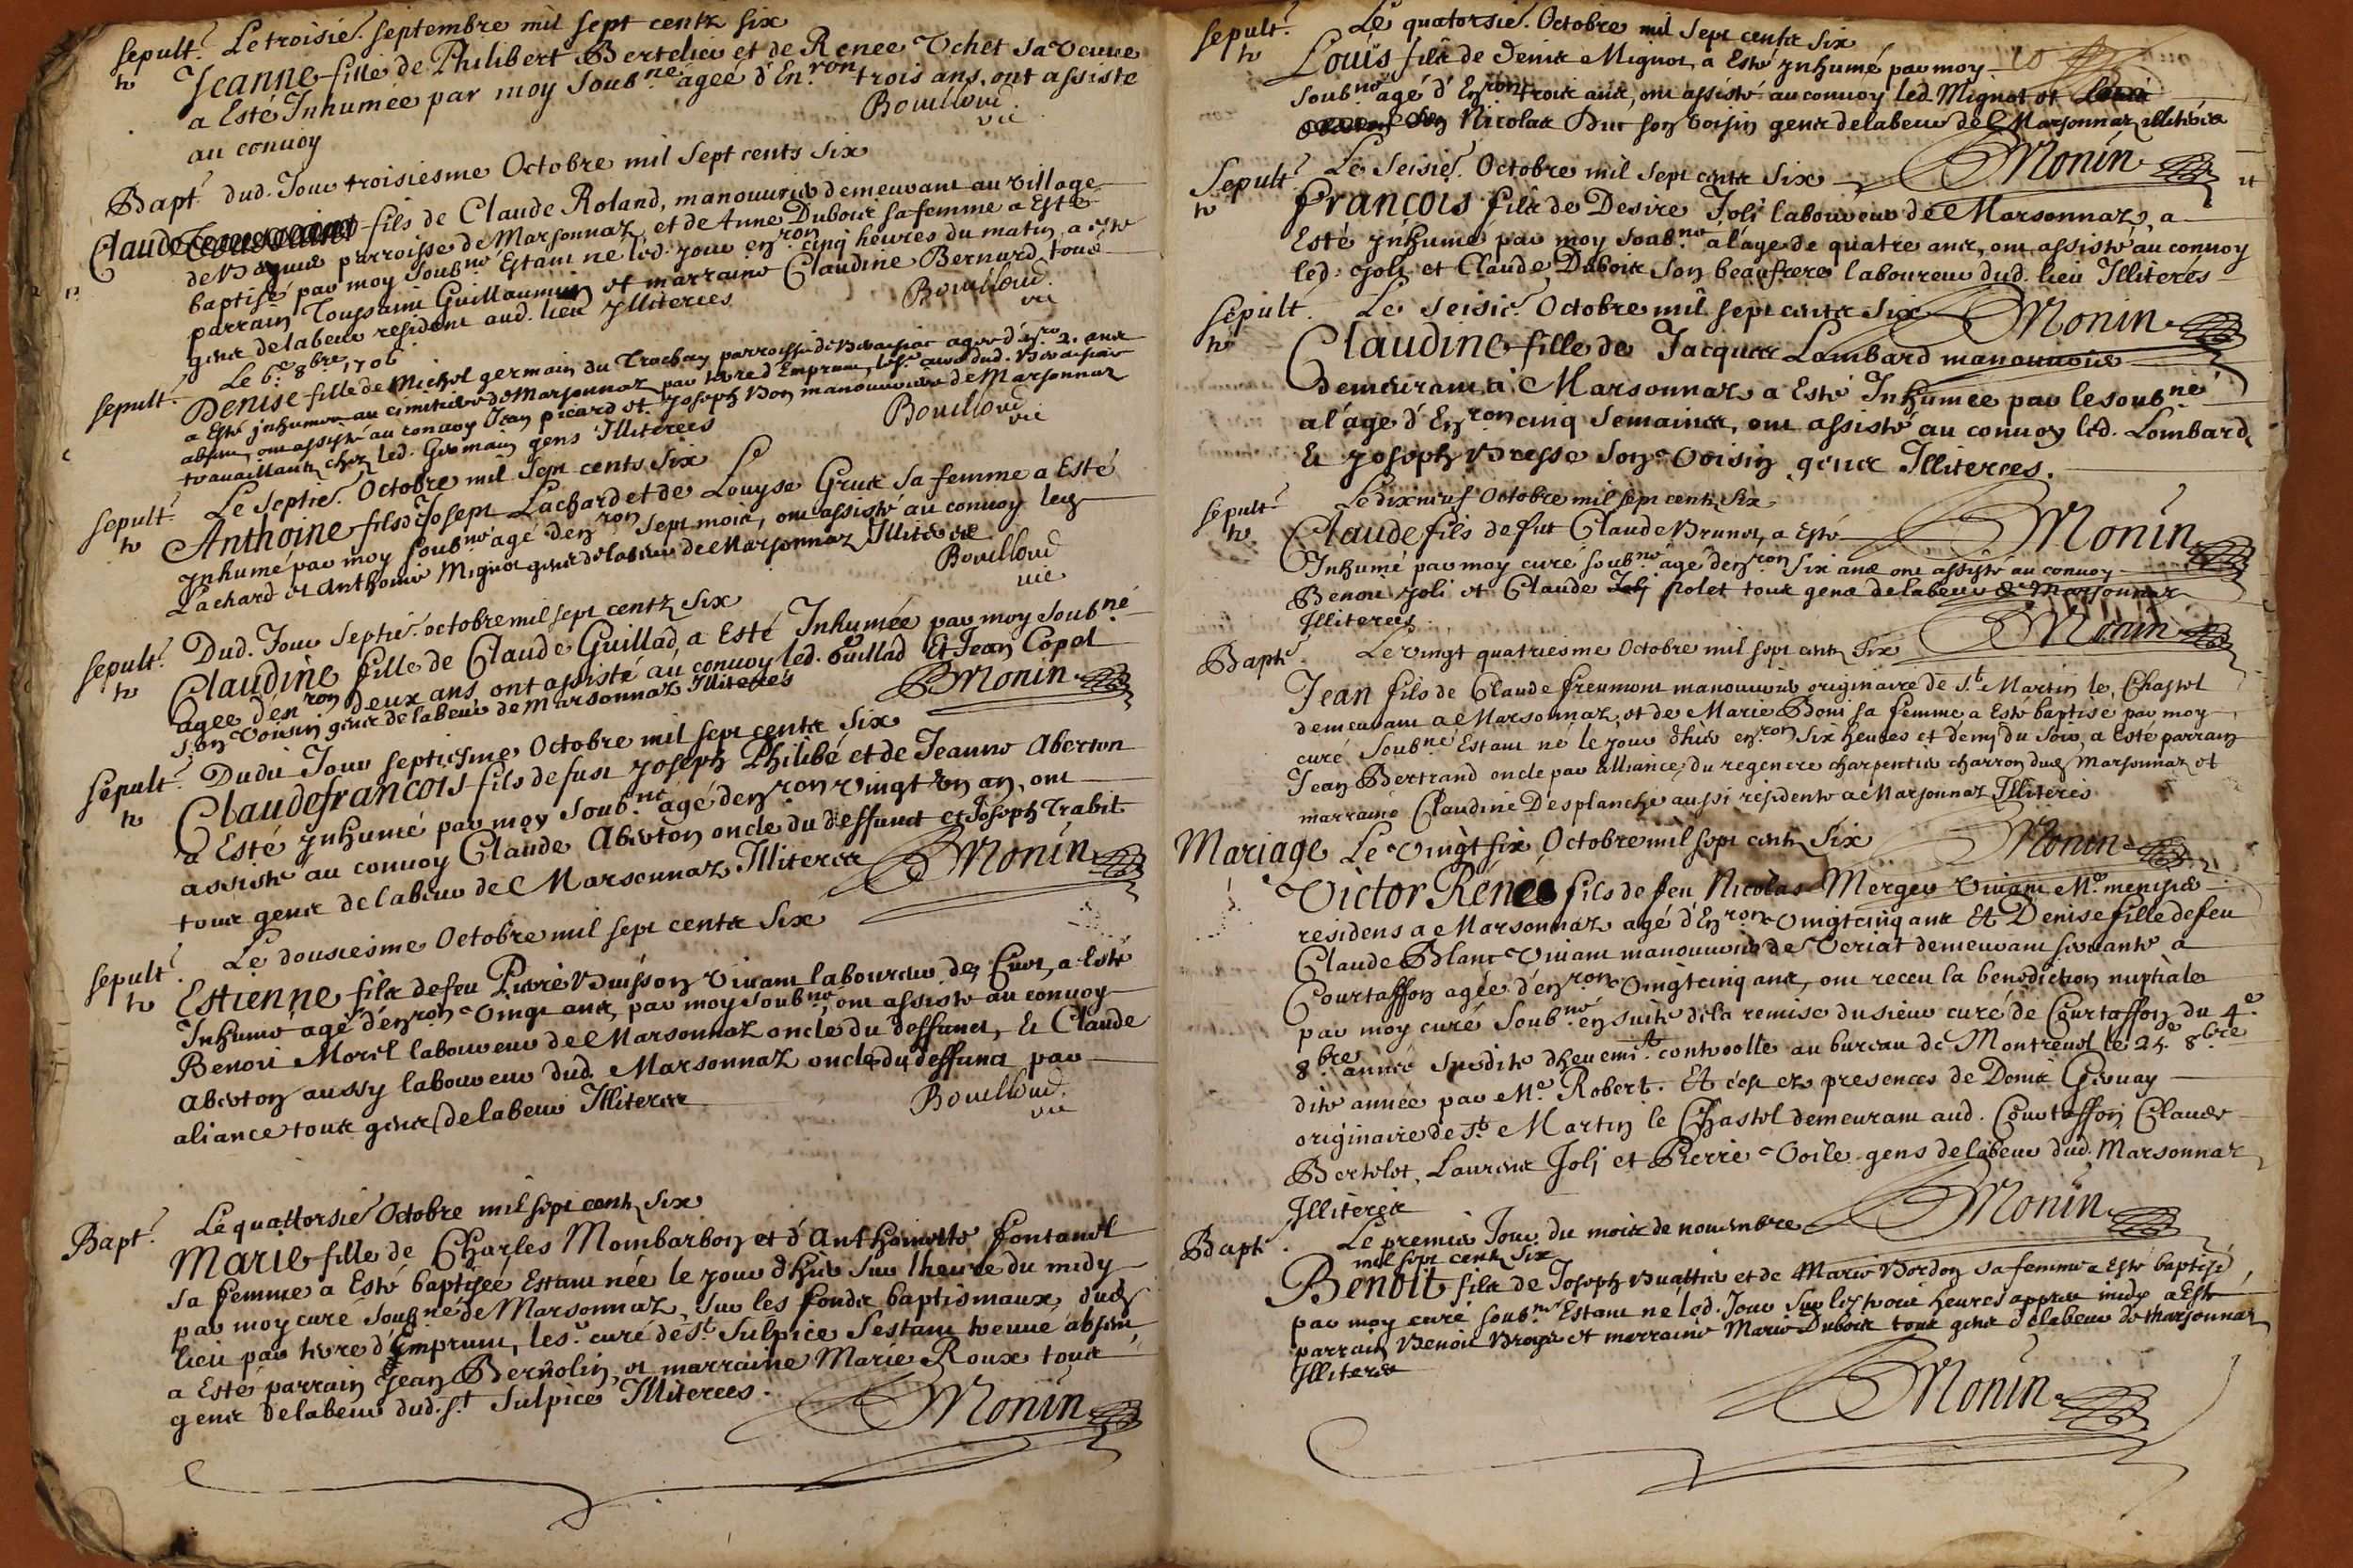 sepult.e Le troisie. septembre mil sept centz six
Jeanne fille de Philibert Bertelier et de Renee Vchet sa veuue
a Esté Inhumée par moy Soub.né agée d'En.ron trois ans, ont assisté
au conuoy
Bouilloud
vic
Bapt.e dud. Jour troisiesme Octobre mil Sept cents six
Claude fils de Claude Roland, manouurier demeurant au village
de parroisse de Marsonnaz, et de Anne Dubois sa femme a Esté
baptisé par moy soub.né Estant né led. jour en.ron cinq heures du matin, a esté
parrain Toussaint Guillaumin et marraine Claudine Bernard tous
gens de labeur resident aud. lieu Illiterees
Bouilloud
vic
Le 6.e 8bre 1706
sepult.e Denise fille de Michel germain du parroisse de agee d'en.ron 2. ans
a Esté Inhumee au cimitiere de Marsonnaz par tiltre d'Emprunt, le sr. curé dud.
absent, ont assisté au conuoy Jean picard et Joseph Bon manouuriers de Marsonnaz
trauaillants chez led. Germain gens Illiterees
Bouilloud
vic
sepult.e Le Septie. Octobre mil Sept cents Six
Anthoine fils de Josept Lachard et de Louyse Gruet Sa femme a Esté
Inhumé par moy soub.né agé d'en.ron Sept mois, ont assisté au conuoy led.
Lachard et Anthoine Mignot gens de labeur de Marsonnaz Illiteres
Bouilloud
vic
sepult.e Dud. Jour Septie. octobre mil sept centz six
Claudine fille de Claude Guillad, a Esté Inhumée par moy soub.né
agee d'en.ron deux ans, ont assisté au conuoy led. Guillad Et Jean Copel
son voisin gens de labeur de Marsonnaz Illiterees
Monin
sepult.e Dudit Jour septiesme Octobre mil sept cents six
Claudefrancois fils de fust Joseph Philibé et de Jeanne Aberton
a Esté Inhumé par moy Soub.né agé d'en.ron vingt vn an, ont
assisté au conuoy Claude Aberton oncle du deffunct et Joseph Trabit
tous gens de labeur de Marsonnaz Illiteres
Monin
sepult.e Le dousiesme Octobre mil sept cents Six
Estienne fils de feu Pierre Buisson viuant laboureur de Cuet, a Esté
Inhumé agé d'en.ron vingt ans, par moy soub.né, ont assisté au conuoy
Benoit Morel laboureur de Marsonnaz oncle du deffunct, Et Claude
Aberton aussy laboureur dud. Marsonnaz oncle du deffunct par
aliance tous gens de labeur Illiteres
Bouilloud
vic
Bapt.e Le quattorsie. Octobre mil sept centz six
Marie fille de Charles Mombarbon et d'Anthoinette fontanel
sa femme a Esté baptisée Estant née le jour d'hier sur lheure du midy
par moy curé soub.né de Marsonnaz, sur les fonds baptismaux, dud.
lieu par tiltre d'Emprunt, le sr. curé de St Sulpice s'estant treuué absent,
a Esté parrain Jean Bernolin, et marraine Marie Roux tous
gens de labeur dud. St Sulpice Illiterees.
Monin
sepult.e Le quatorsie. Octobre mil sept cents six
Louis fils de Denis Mignot, a Esté Inhumé par moy
soub.né agé d'En.ron trois ans, ont assisté au conuoy led. Mignot et
Nicolas Duc son voisin gens de labeur de Marsonnaz illiteres
Monin
Sepult.e Le Seisie. Octobre mil sept cents six
francois fils de Desire Joli laboureur de Marsonnaz, a
Esté Inhumé par moy Soub.né a l'age de quatre ans, ont assisté au conuoy
led. Joli et Claude Dubois Son beaufrere laboureur dud. lieu Illiterés
Monin
Sepult. Le Seisie. Octobre mil sept cents six
Claudine fille de Jacques Lombard manouurier
demeurant a Marsonnaz a Esté Inhumée par le soub.né
a l'age d'En.ron cinq Semaines, ont assisté au conuoy led. Lombard
Et Joseph Bresse Son Voisin gens Illiterees.
Monin
sepult.e Le dixneuf Octobre mil sept centz six
Claude fils de fut Claude Brunet, a Esté
Inhumé par moy curé soub.né agé d'en.ron six ans ont assisté au conuoy
Benoit Joli et Claude polet tous gens de labeur de Marsonnaz
Illiterees
Monin
Bapt.e Le vingt quatriesme Octobre mil sept centz six
Jean fils de Claude freumont manouurier originaire de St Martin le Chastel
demeurant a Marsonnaz, et de Marie Boni sa femme, a Esté baptisé par moy
curé Soub.né Estant né le jour d'hier en.ron six heures et demy du soir, a esté parrain
Jean Bertrand oncle par alliance, du regeneré charpentier charron dud. Marsonnaz et
marraine Claudine Desplanche aussi residente a Marsonnaz Illiteres
Monin
Mariage Le vingt six Octobre mil sept centz six
Victor René fils de feu Nicolas Mergey viuant Me. menusier
residens a Marsonnaz agé d'En.ron vingtcinq ans Et Denise fille de feu
Claude Blanc viuant manouurier de Veriat demeurant seruante a
Courtaffon agée d'en.ron vingtcinq ans, ont receu la benediction nuptiale
par moy curé Soub.né ensuite de la remise du sieur curé de Courtaffon du 4.e
8.bre année Susdite dheuemt. controolle au bureau de Montreuel le 25.e 8bre
dite année par Me. Robert. Et ce es presences de Denis Geruay
originaire de St. Martin le Chastel demeurant aud. Courtaffon, Claude
Bertelot, Laurens Joli et Pierre Voile gens de labeur dud. Marsonnaz
Illiteres
Monin
Bapt.e Le premier Jour du mois de nouembre
mil sept centz six
Benoit fils de Joseph Buattier et de Marie Bordon sa femme a Esté baptisé
par moy curé soub.né Estant né led. Jour sur les trois heures appres midy a Esté
parrain Benoit Broye et marraine Marie Dubois tous gens de labeur de Marsonnaz
Illiteres
Monin